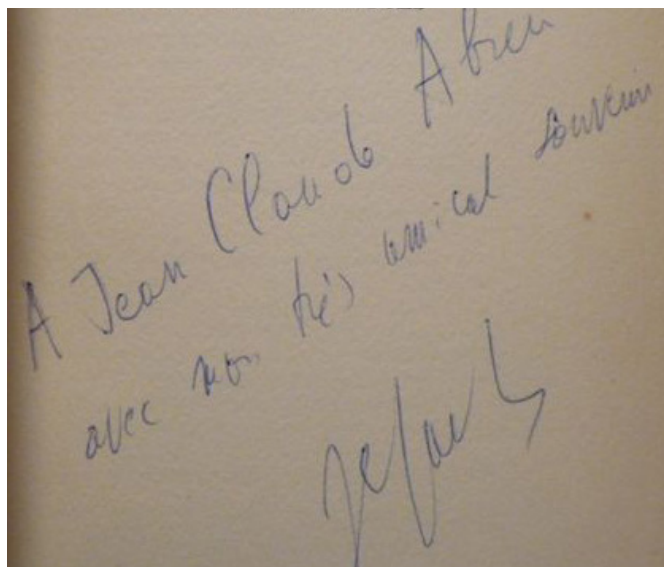 A Jean Claude Abreu
avec mon très amical souvenir